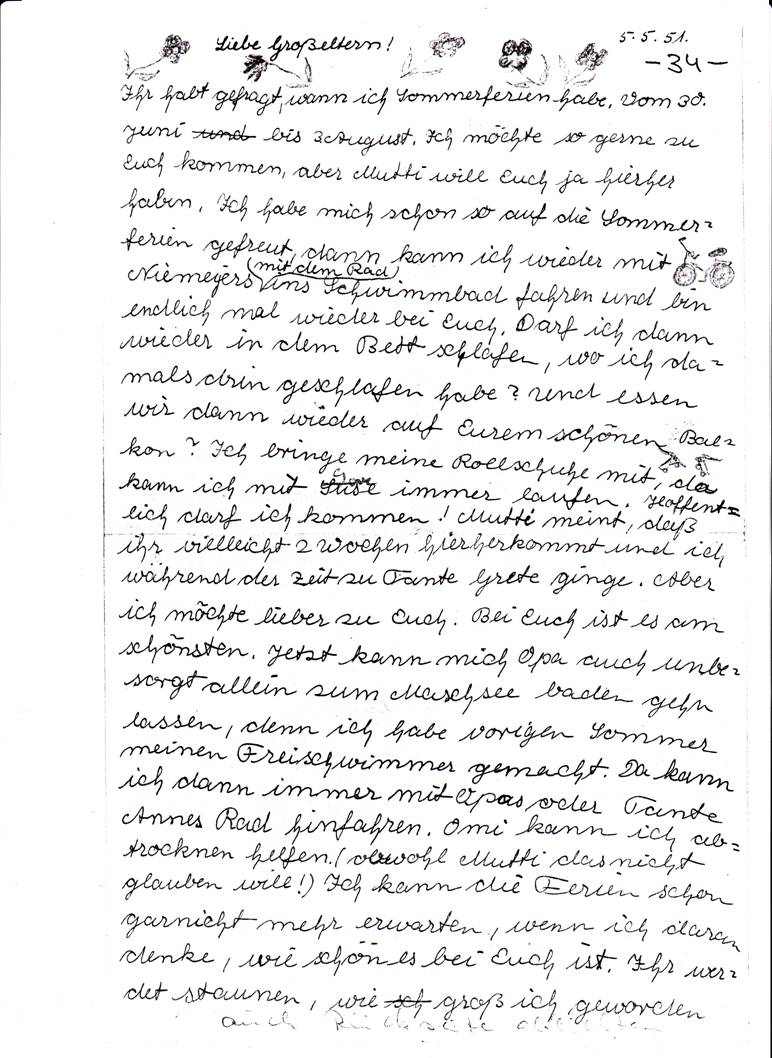 5. 5. 51.
Liebe Großeltern!
-34-
Ihr habt gefragt, wann ich Sommerferien habe. Vom 30.
Juni und bis 3 August. Ich möchte so gerne zu
Euch kommen, aber Mutti will Euch ja hierher
haben. Ich habe mich schon so auf die Sommer=
ferien gefreut, dann kann ich wieder mit
Niemeyers (mit dem Rad) ins Schwimmbad fahren und bin
endlich mal wieder bei Euch. Darf ich dann
wieder in dem Bett schlafen, wo ich da=
mals drin geschlafen habe? Und essen
wir dann wieder auf Eurem schönen Bal=
kon? Ich bringe meine Rollschuhe mit, da
kann ich mit immer laufen. Hoffent=
lich darf ich kommen! Mutti meint, daß
ihr vielleicht 2 Wochen hierherkommt und ich
während der Zeit zu Tante Grete ginge. Aber
ich möchte lieber zu Euch. Bei Euch ist es am
schönsten. Jetzt kann mich Opa auch unbe=
sorgt allein zum Maschsee baden gehn
lassen, denn ich habe vorigen Sommer
meinen Freischwimmer gemacht. Da kann
ich dann immer mit Opas oder Tante
Annes Rad hinfahren. Omi kann ich ab=
trocknen helfen. (obwohl Mutti das nicht
glauben will!) Ich kann die Ferien schon
garnicht mehr erwarten, wenn ich daran
denke, wie schön es bei Euch ist. Ihr wer=
det staunen, wie sch groß ich geworden
auch